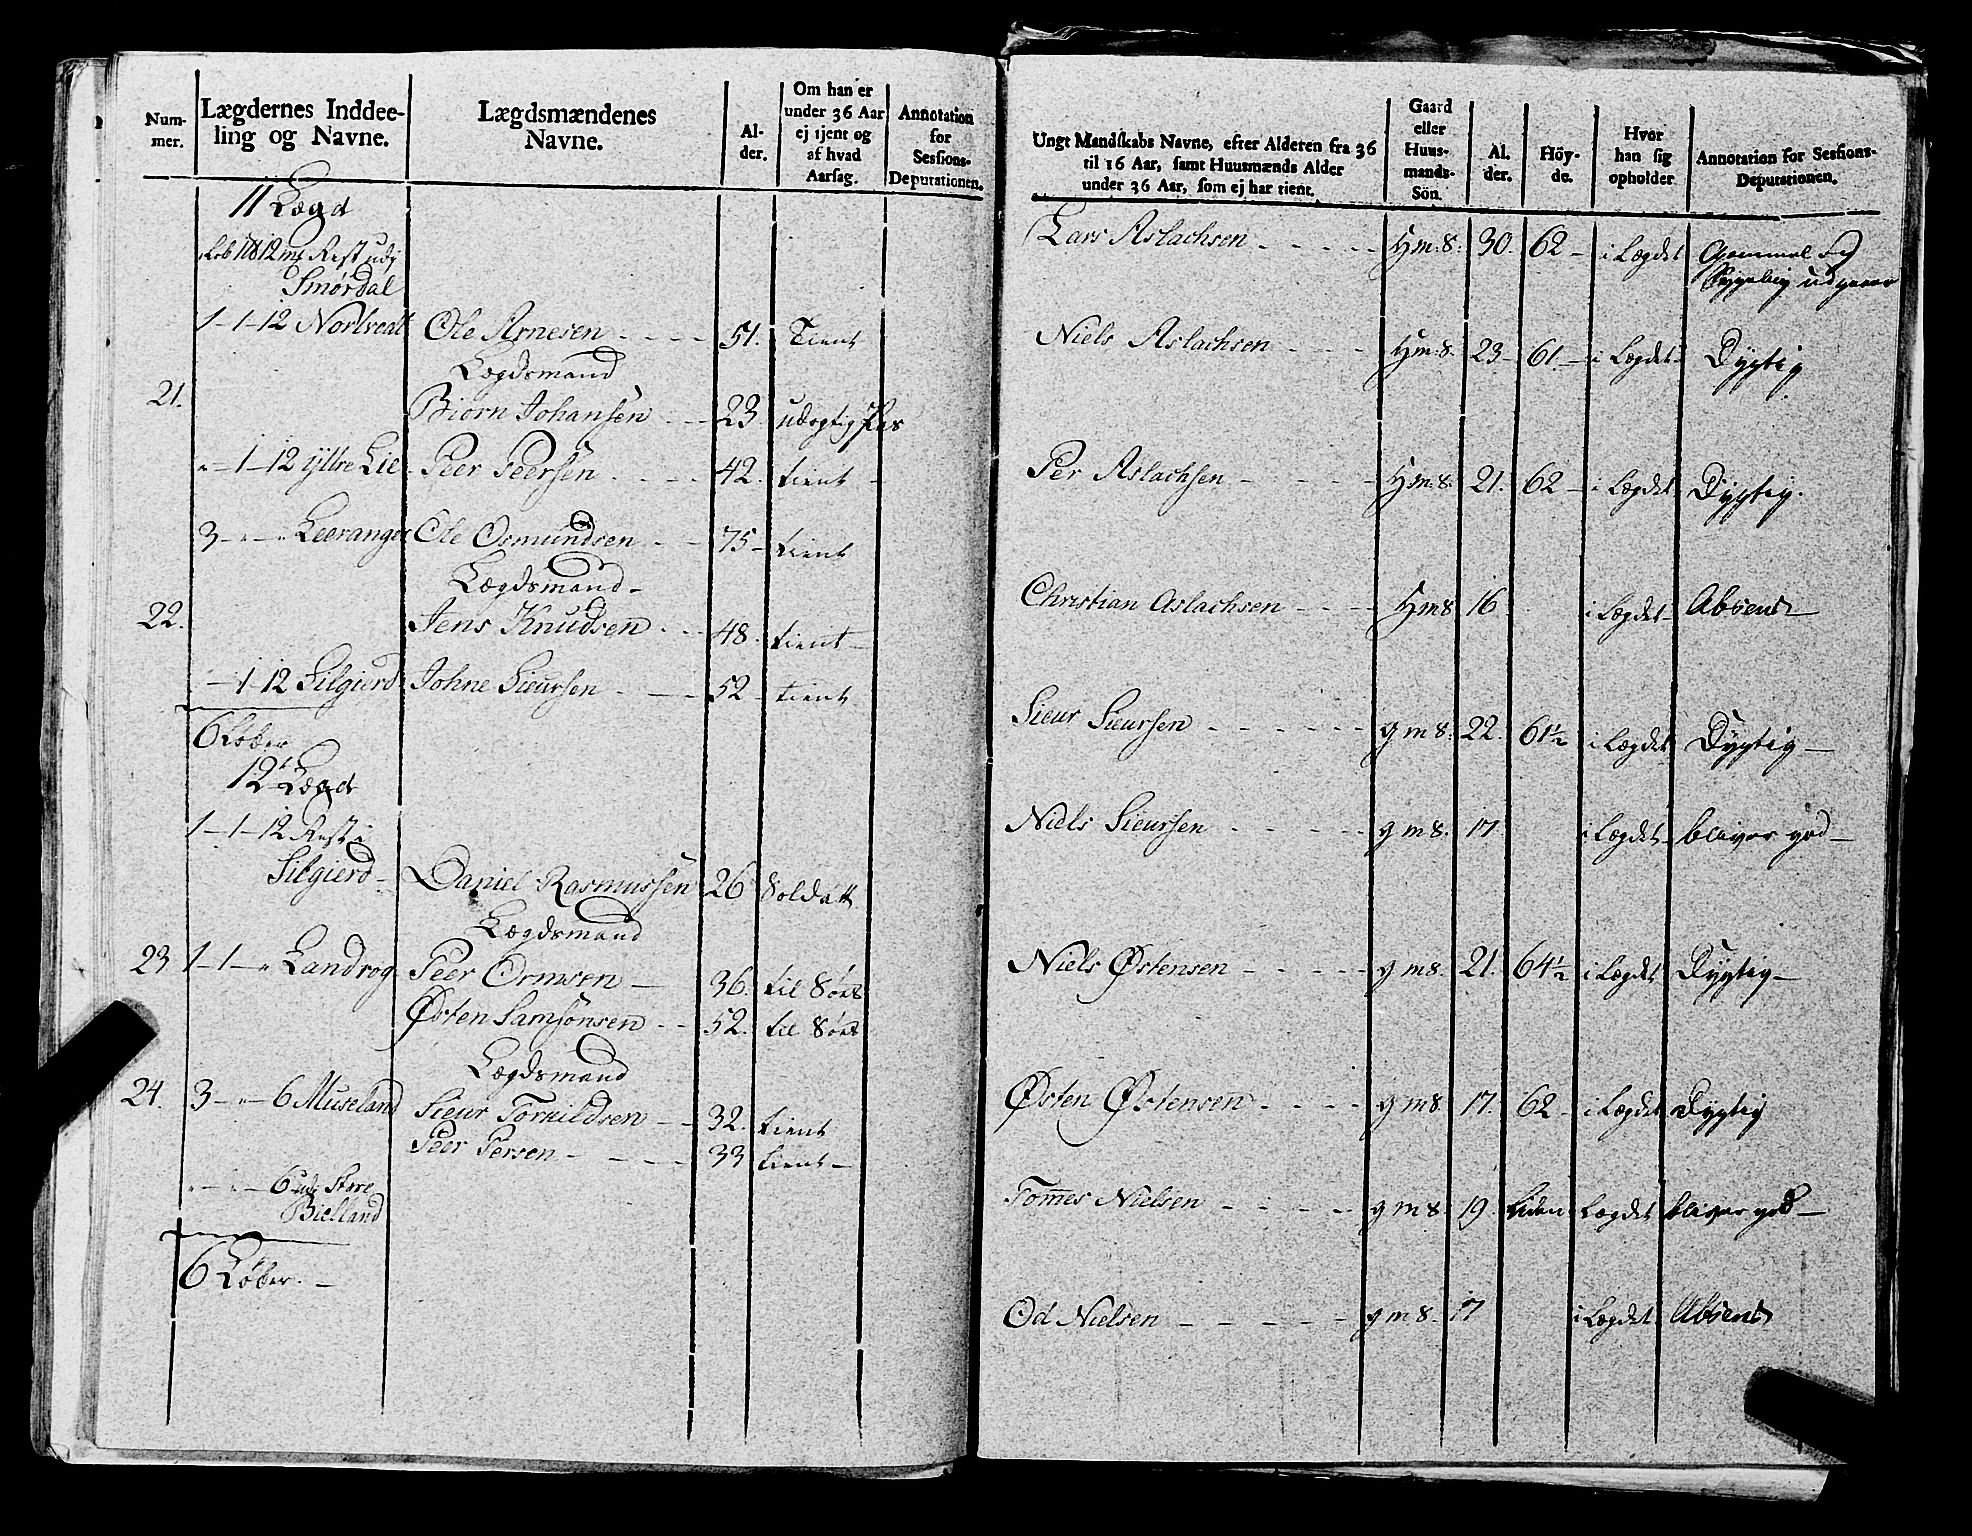 Num-
mer.
Lægdernes Inddee-
ling og Navne.
Lægdsmændenes
Navne.
Al-
der.
Om han er
under 36 Aar
ej tjent og
af hvad
Aarsag.
Annotation
for
Sessions-
Deputationen.
11 Lægd
Rest udj
Smørdal
1-1-12 Nortveatt Ole Arnesen 51. Tient
Lægdsmand
21.
Biørn Johansen 23
"-1-12 ÿttre Lie Peer Peersen 42. tient
3-"-" Leeranger Ole Osmundsen 75 tient
Lægdsmand
22. Jens Knudsen 48. tient
1-12 Silgierd Johne Sieursen 52 tient
6 Løber
12te Lægd
1-1-12 Rest i
Silgierd Daniel Rasmussen 26 Soldatt
Lægdsmand
23 1-1-" Landrog Peer Ormsen 36. til Søes
Østen Samsonsen 52. til Søes
Lægdsmand
24. 3-"-6 Museland Sieur Torkildsen 32. tient
Peer Persen 33 tient
"-"-6 udj Store
Bielland
6 Løber.
Ungt Mandskabs Navne, efter Alderen fra 36
til 16 Aar, samt Huusmænds Alder
under 36 Aar, som ej har tient.
Gaard
eller
Huus-
mands-
Sön.
Al.
der.
Höy-
de.
Hvor
han sig
opholder
Annotation for Sessions-
Deputationen.
Lars Aslachsen Hm: S: 30. 62 i Lægdet Gammel og
Sygelig udgaaer
Niels Aslachsen Hm: S. 23 61. i Lægdet Dygtig
Per Aslachsen Hm: S. 21. 62 i Lægdet Dygtig.
Christian Aslachsen Hm S 16 i Lægdet Absent
Sieur Sieursen g m S. 22. 61½ i Lægdet Dygtig
Niels Sieursen g m S. 17. i Lægdet bliver god
Niels Østensen g m S. 21. 64½ i Lægdet Dygtig
Østen Østensen g m S. 17. 62 i Lægdet Dygtig
Tomes Nielsen g m S. 19. Liden i Lægdet bliver god
Od Nielsen g m S. 17 i Lægdet Absent